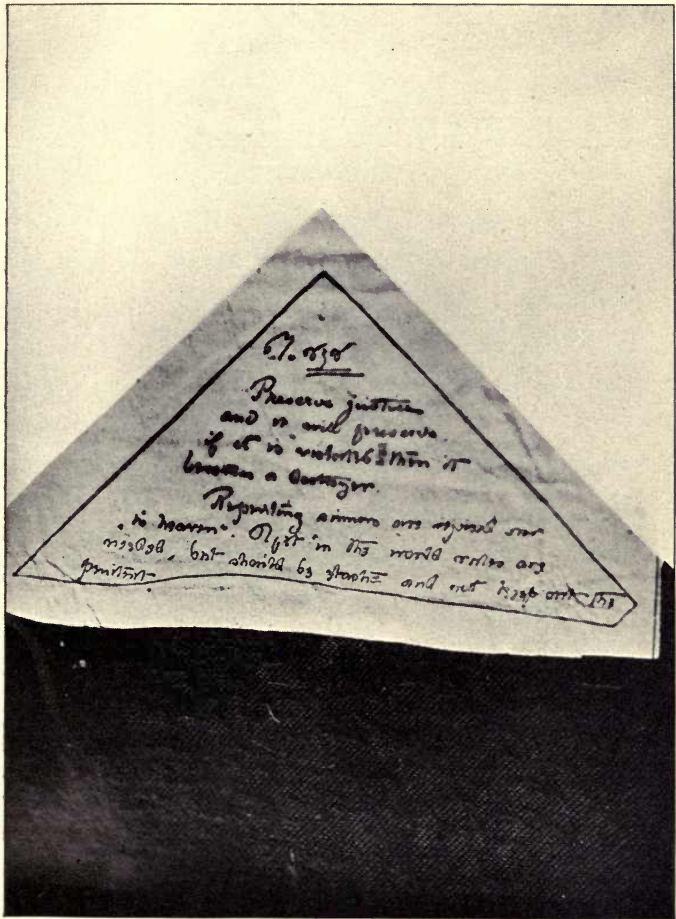 Preserve justice
and it will preserve.
if it is violated then it
becomes a destroyer.
Repenting sinners are
in heaven". But in the world rules are
needed, but should be and not keep out the
penitent